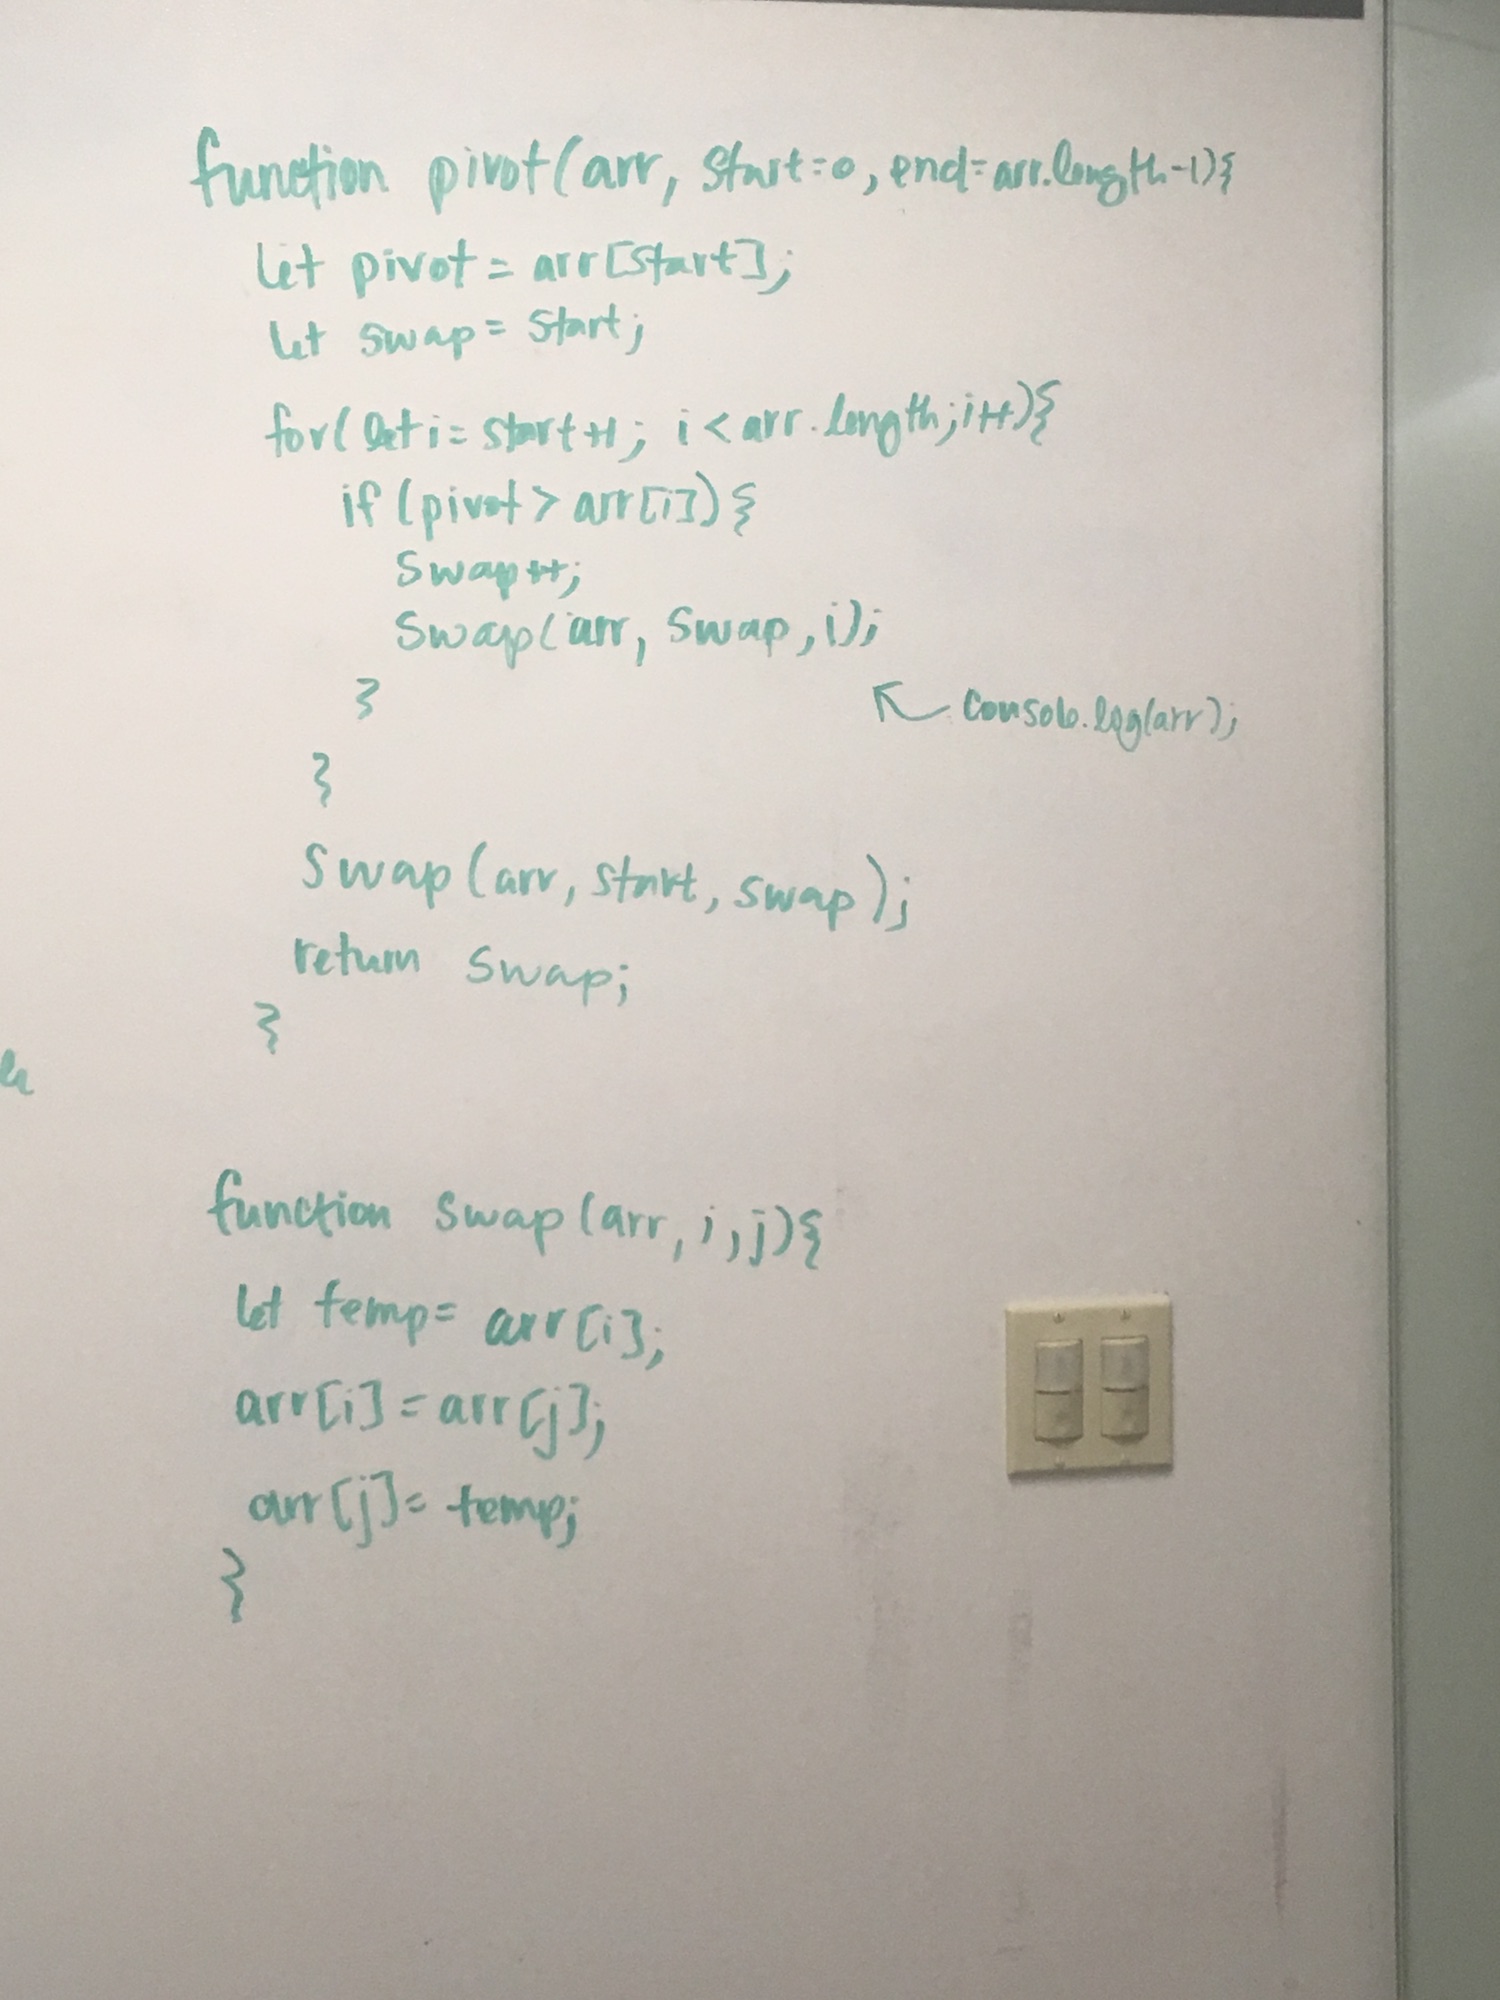 function pivot(arr, start=0, end=arr.length-1){
let pivot = arr[start];
let swap = start;
for(let i = start+1; i < arr.length; i++){
if (pivot > arr[i]) {
swap++;
swap(arr, swap, i);
}
console.log(arr);
}
swap(arr, start, swap);
return swap;
}
function swap(arr, i, j){
let temp = arr[i];
arr[i] = arr[j];
arr[j] = temp;
}